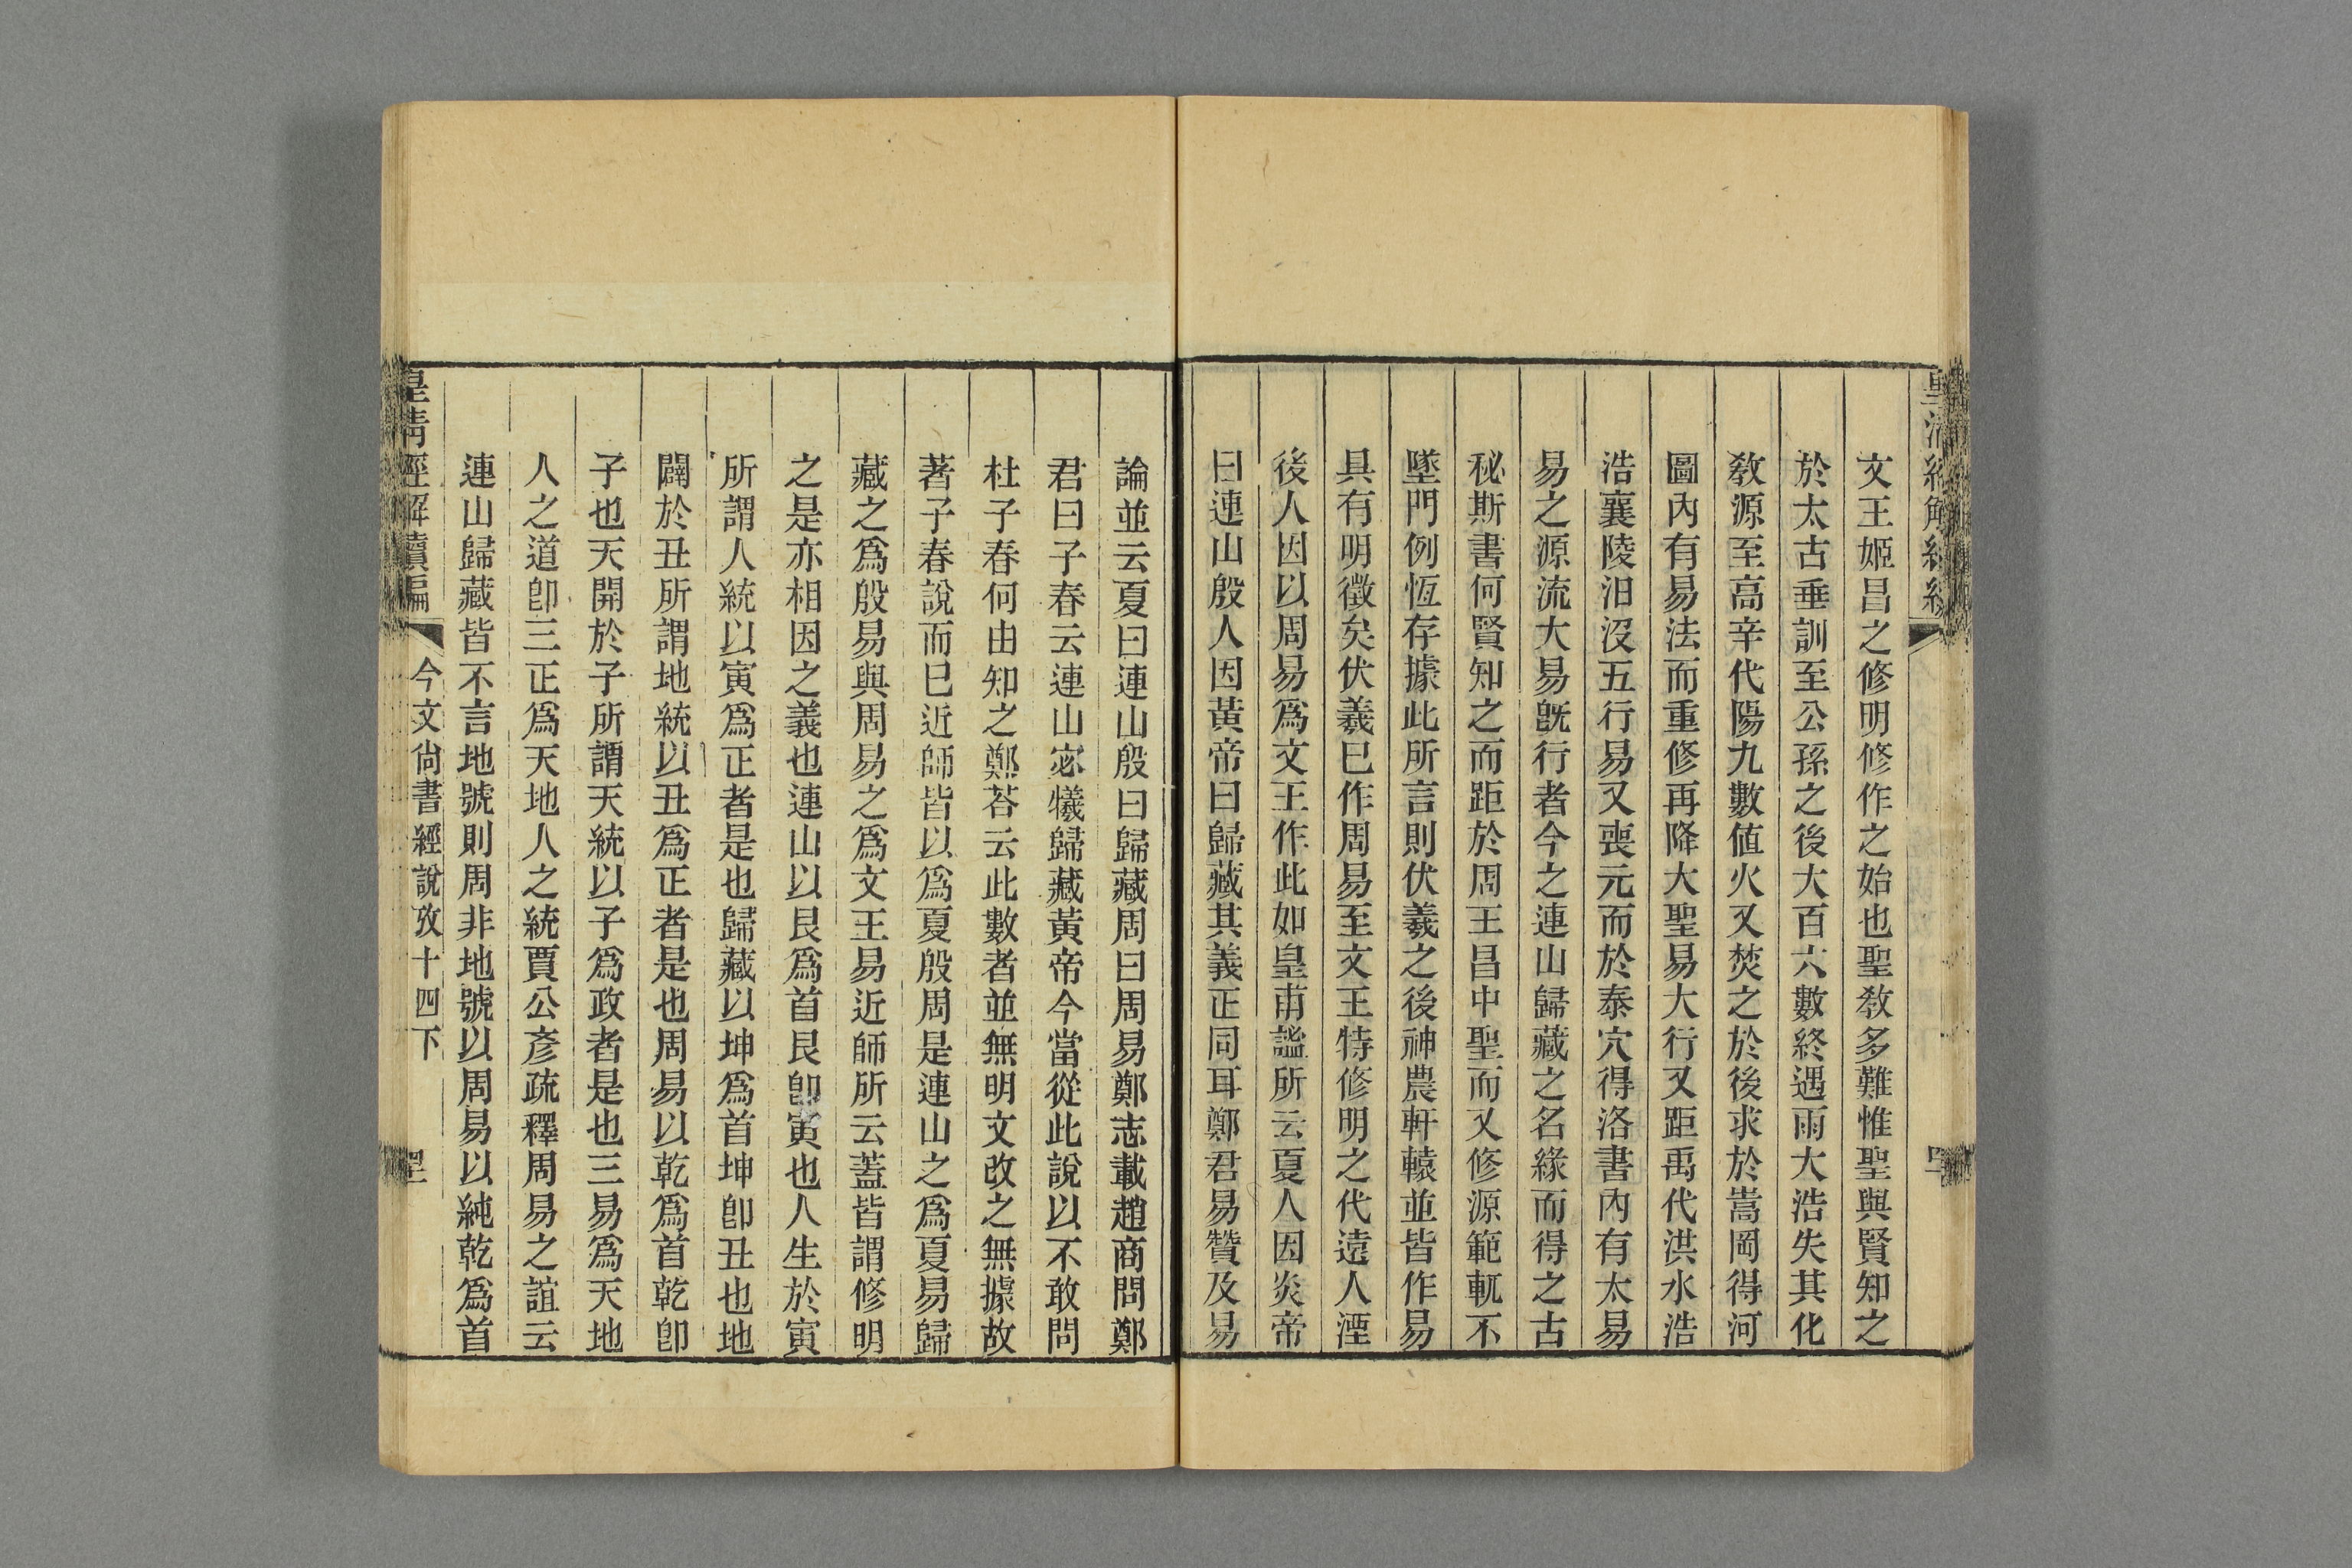 文王姬昌之修明修作之始也聖敎多難惟聖與賢知之
於太古垂訓至公孫之後大百六數終遇雨大浩失其化
敎源至高辛代陽九數值火又焚之於後求於嵩岡得河
圖內有易法而重修再降大聖易大行又距禹代洪水浩
浩襄陵汨沒五行易又喪元而於泰穴得洛書內有太易
易之源流大易旣行者今之連山歸藏之名緣而得之古
秘斯書何賢知之而距於周王昌中聖而又修源範軏不
墜門例恆存據此所言則伏羲之後神農軒轅並皆作易
具有明徵矣伏羲已作周易至文王特修明之代遠人湮
後人因以周易爲文王作此如皇甫謐所云夏人因炎帝
曰連山殷人因黃帝曰歸藏其義正同耳鄭君易贊及易
論並云夏曰連山殷曰歸藏周曰周易鄭志載趙商問鄭
君曰子春云連山宓犧歸藏黃帝今當從此說以不敢問
杜子春何由知之鄭荅云此數者並無明文改之無據故
著子春說而已近師皆以爲夏殷周是連山之爲夏易歸
藏之爲殷易與周易之爲文王易近師所云蓋皆謂修明
之是亦相因之義也連山以艮爲首艮卽寅也人生於寅
所謂人統以寅爲正者是也歸藏以坤爲首坤卽丑也地
闢於丑所謂地統以丑爲正者是也周易以乾爲首乾卽
子也天開於子所謂天統以子爲政者是也三易爲天地
人之道卽三正爲天地人之統賈公彥疏釋周易之誼云
連山歸藏皆不言地號則周非地號以周易以純乾爲首
皇淸經解續編 今文尙書經說攷十四下